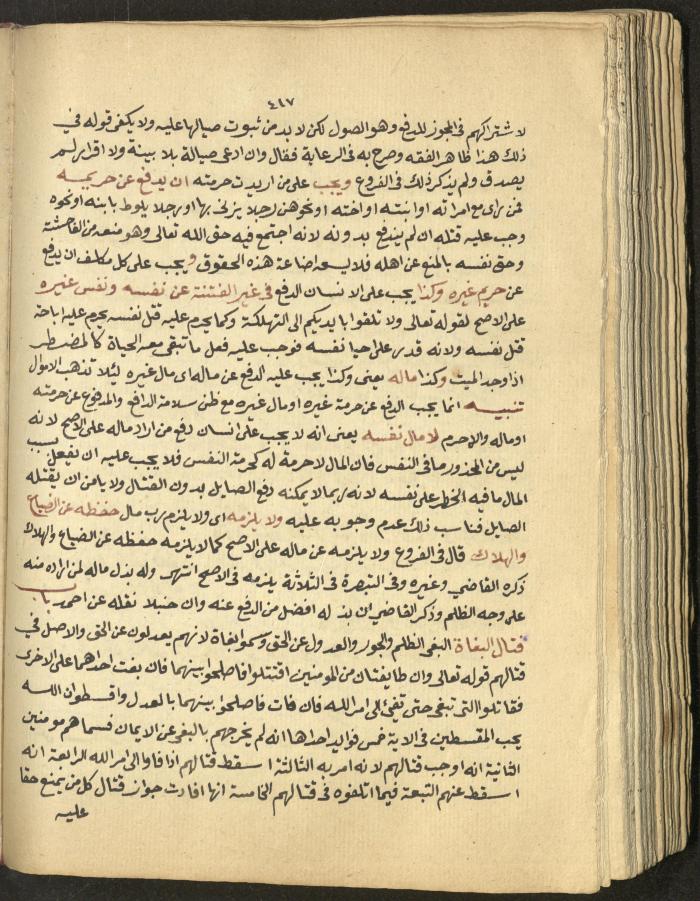 ٤١٧
لاشتراكهم في المجوز للدفع وهو الصول لكن لابد من ثبوت صيالها عليه ولا يكفي قوله في
ذلك هذا ظاهر الفقه وصرح به في الرعاية فقال وان ادعى صيالة بلا بينة ولا اقرار لم
يصدق ولم يذكر ذلك في الفروع ويجب على من اريدت حرمته ان يدفع عن حريمه
فمن رأى مع امراته او ابنته او اخته او نحوهن رجلا يزني بها او رجلا يلوط بابنه او نحوه
وجب عليه قتله ان لم يندفع بدونه لانه اجتمع فيه حق الله تعالى وهو منعه من الفاحشة
وحق نفسه بالمنع عن اهله فلا يسعه اضاعة هذه الحقوق ويجب على كل مكلف ان يدفع
عن حريم غيره وكذا يجب على الانسان الدفع في غير الفتنة عن نفسه ونفس غيره
على الاصح لقوله تعالى ولا تلقوا بايديكم الى التهلكة وكما يحرم عليه قتل نفسه يحرم عليه اباحة
قتل نفسه ولانه قدر على احيا نفسه فوجب عليه فعل ما تبقى معه الحياة كالمضطر
اذا وجد الميت وكذا ماله يعني وكذا يجب عليه الدفع عن ماله اي مال غيره ليلا تذهب الاموال
تنبيه انما يجب الدفع عن حرمة غيره او مال غيره مع ظن سلامة الدافع والمدفوع عن حرمته
او ماله والاحرم لا مال نفسه يعني انه لا يجب على انسان دفع من اراد ماله على الاصح لانه
ليس من المحذور ما في النفس فان المال لا حرمة له كحرمة النفس فلا يجب عليه ان يفعل بسبب
المال ما فيه الخطر على نفسه لانه ربما لا يمكنه دفع الصايل بدون القتال ولا يامن ان يقتله
الصايل فناسب ذلك عدم وجوبه عليه ولا يلزمه اي ولا يلزم رب مال حفظه عن الضياع
والهلاك قال في الفروع ولا يلزمه عن ماله على الاصح كما لا يلزمه حفظه عن الضياع والهلاك
ذكره القاضي وغيره وفي التبصرة في الثلاثة يلزمه في الاصح انتهى وله بذل ماله لمن اراده منه
على وجه الظلم وذكر القاضي ان بذله افضل من الدفع عنه وان حنبلا نقله عن احمد باب
قتال البغاة البغي الظلم والجور والعدول عن الحق وسموا بغاة لانهم يعدلون عن الحق والاصل في
قتالهم قوله تعالى وان طايفتان من المومنين اقتتلوا فاصلحوا بينهما فان بغت احداهما على الاخرى
فقاتلوا التي تبغي حتى تفيء الى امر الله فان فات فاصلحوا بينهما بالعدل واقسطوا ان الله
يحب المقسطين في الاية خمس فوايد احداها انه لم يخرجهم بالبغي عن الايمان فسماهم مومنين
الثانية انه اوجب قتالهم لانه امر به الثالثة اسقط قتالهم اذا فاوا الى امر الله الرابعة انه
اسقط عنهم التبعة فيما اتلفوه في قتالهم الخامسة انها افادت جواز قتال كل من يمنع حقا
عليه